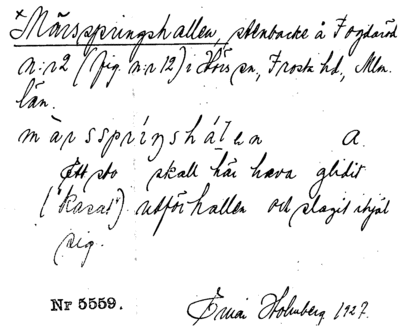 × Märsspringshallen, stenbacke å Fogdaröd
n:r 2 (fig. n:r 12) i Hörs sn, Frosta hd, Mlm.
län.
märsspríŋshálen A.
Ett sto skall här hava glidit
("kasat") utför hallen och slagit ihjäl
sig.
Nr 5559. Holmberg 1927.